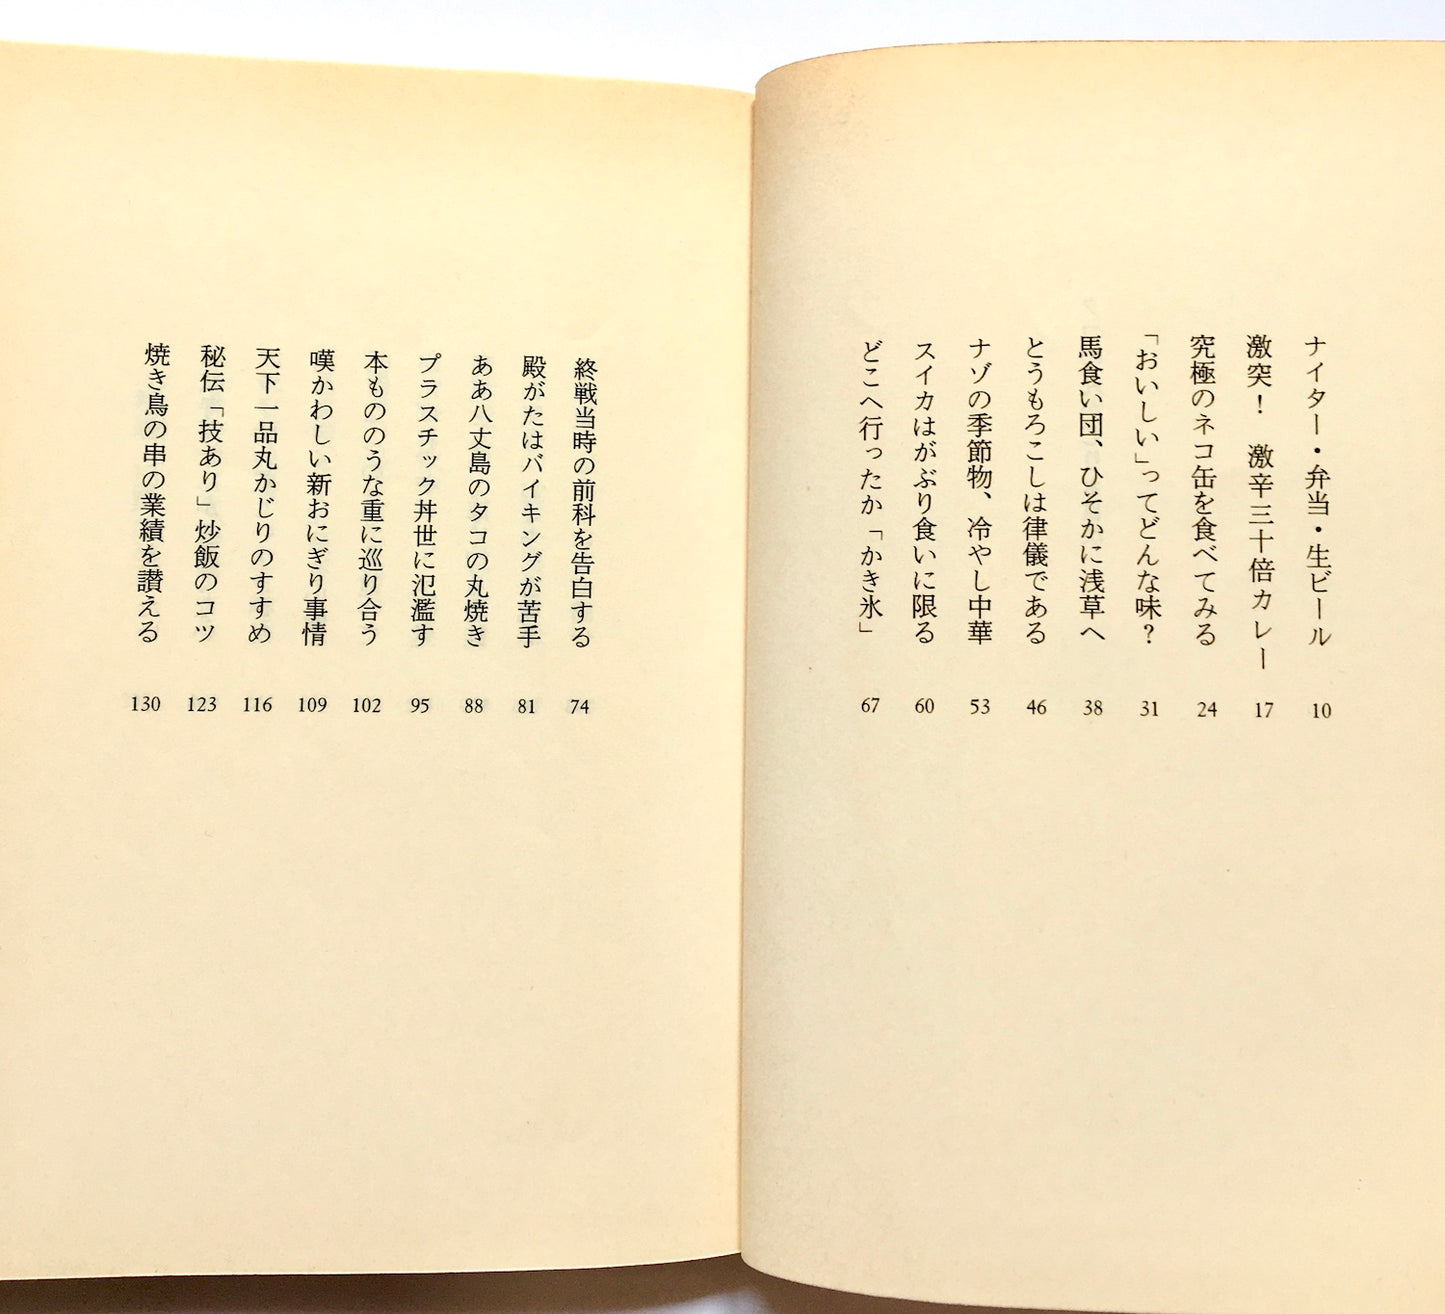 ナイター・弁当・生ビール 10
激突！　激辛三十倍カレー 17
究極のネコ缶を食べてみる 24
「おいしい」ってどんな味？ 31
馬食い団、ひそかに浅草へ 38
とうもろこしは律儀である 46
ナゾの季節物、冷やし中華 53
スイカはがぶり食いに限る 60
どこへ行ったか「かき氷」 67
終戦当時の前科を告白する 74
殿がたはバイキングが苦手 81
ああ八丈島のタコの丸焼き 88
プラスチック丼世に氾濫す 95
本もののうな重に巡り合う 102
嘆かわしい新おにぎり事情 109
天下一品丸かじりのすすめ 116
秘伝「技あり」炒飯のコツ 123
焼き鳥の串の業績を讃える 130